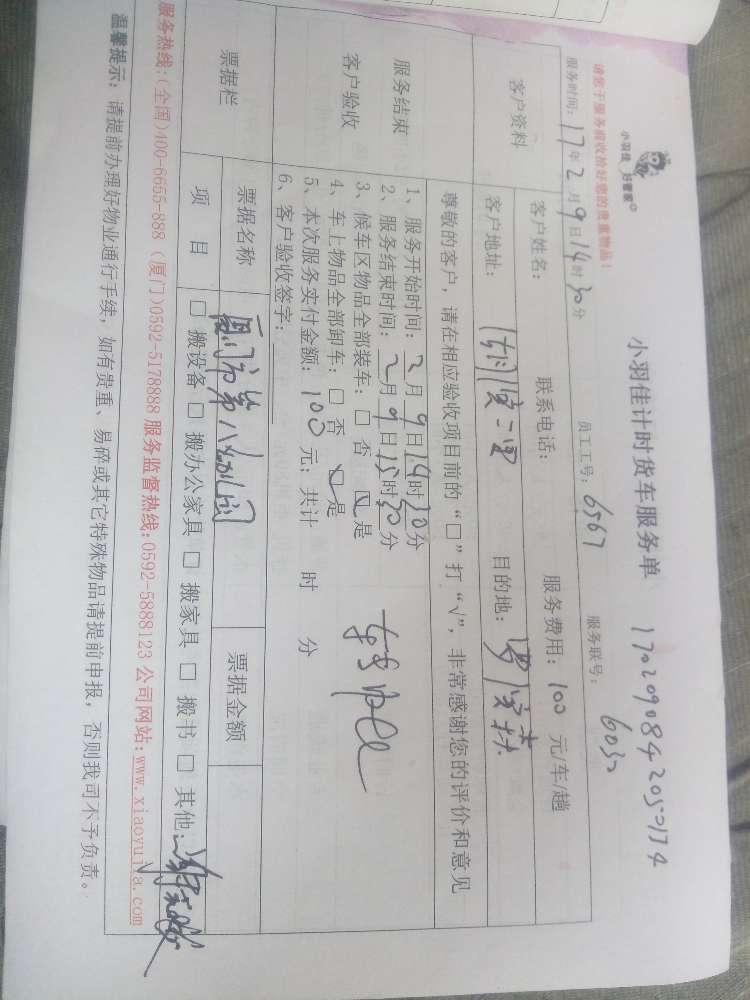 小羽佳 好管家
小羽佳计时货车服务单 1702090842050174
请您于服务前收拾好您的贵重物品!
服务时间: 17年2月9日14时30分 员工工号: 6567 服务联号: 6030
客户资料
客户姓名: 联系电话: 服务费用: 100 元/车/趟
客户地址: 目的地:
尊敬的客户,请在相应验收项目前的“□”打“√”,非常感谢您的评价和意见
服务结束
客户验收
1、服务开始时间: 2月9日14时30分
2、服务结束时间: 2月9日15时30分
3、候车区物品全部装车: □ 否 ☑ 是
4、车上物品全部卸车: □ 否 ☑ 是
5、本次服务实付金额: 100 元; 共计 时 分
6、客户验收签字:
票据栏
票据名称 厦门市第八 票据金额
项目 □ 搬设备 □ 搬办公家具 □ 搬家具 □ 搬书 □ 其他:
服务热线:(全国)400-6655-888 (厦门)0592-5178888 服务监督热线:0592-5888123 公司网站:www.xiaoyujia.com
温馨提示: 请提前办理好物业通行手续,如有贵重、易碎或其它特殊物品请提前申报,否则我司不予负责。